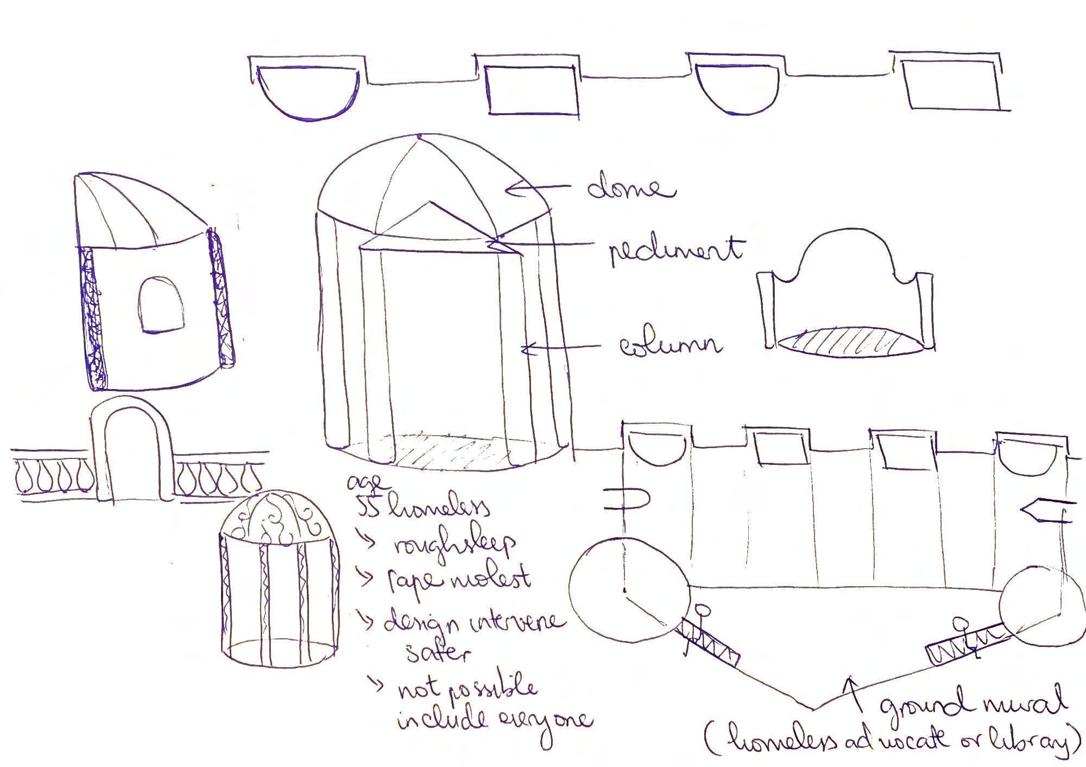 dome
pediment
column
age
55 homeless
↳ roughsleep
↳ rape molest
↳ design intervene
safer
↳ not possible
include everyone
ground mural
(homeless advocate or library)